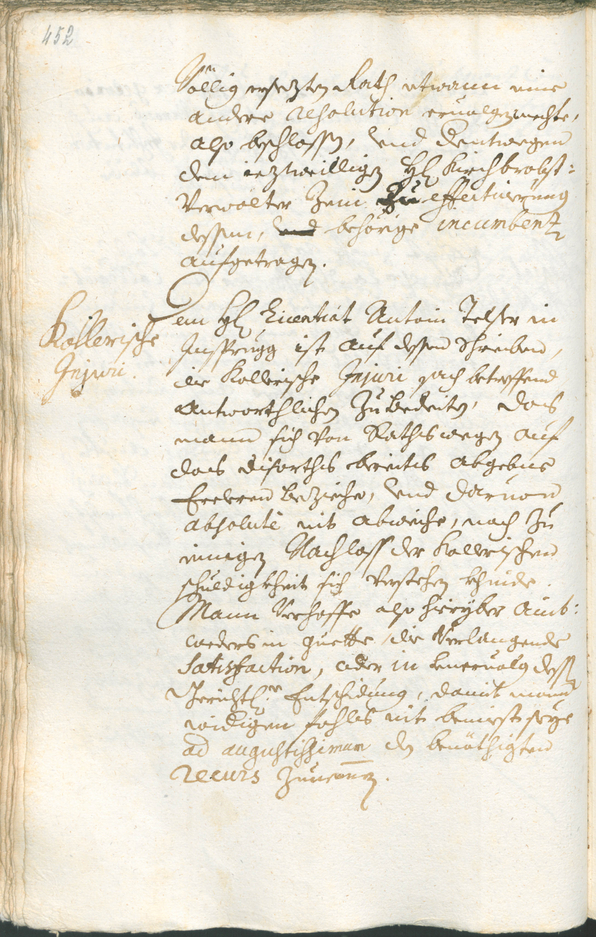 452
Völlig ersezten Rath etwann eine
andere resolution ervolgen mechte,
also beschlossen, und dentwegen
dem ieztweilligen H: Kirchbrobst-
Verwalter Jenin zu effectuierung
dessen, und behörige incumbenz
aufgetragen.
Kollerische
Injuri.
Dem H: Licentiat Antoin Telser in
Insprugg ist auf dessen Schreiben,
die Kollerische Injuri sach betreffend
antworthlichen zu bedeiten, das
mann sich von Rathswegen auf
das diseorths bereits abgebne
beziehe, und daruon
absolutè nit abweiche, noch zu
einigen Nachlass der Kollerischen
schuldigkheit sich verstehen khinde.
Mann verhoffe also hieryber ant-
weders in guette die verlangende
Satisfaction, oder in dessen
Gerichtl: Entscheidung, damit mann
widrigen fahls nit seye
ad augustissimum den benöthigten
recurs zunemen.